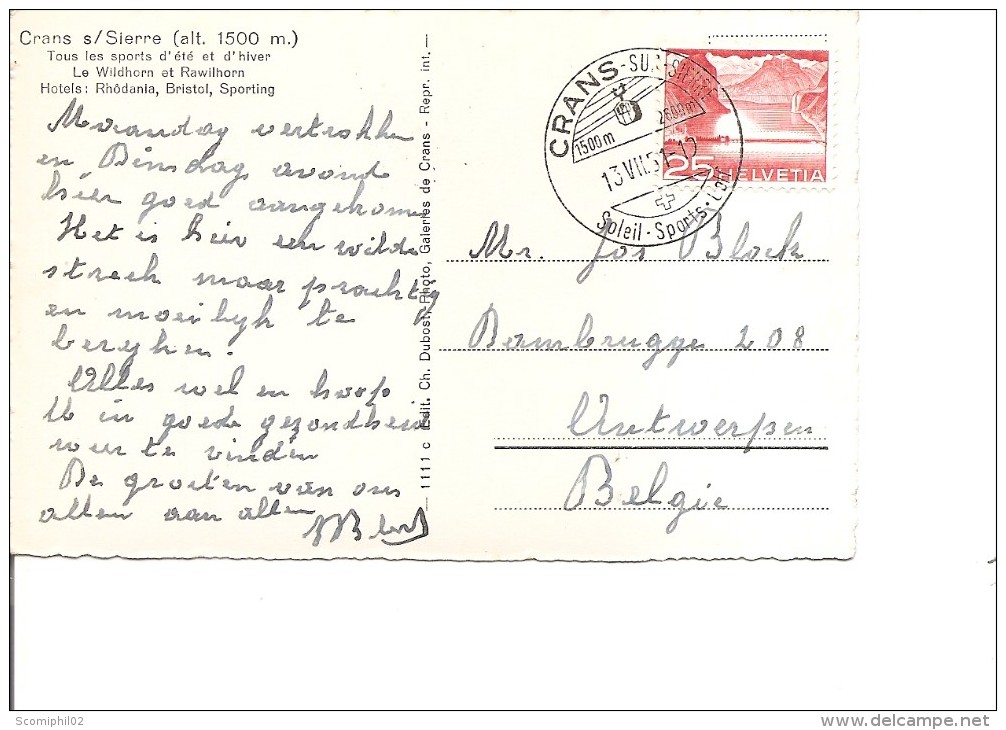 Crans s/Sierre (alt. 1500 m.)
Tous les sports d'été et d'hiver
Le Wildhorn et Rawilhorn
Hotels: Rhôdania, Bristol, Sporting
Maandag vertrokken
en Dinsdag avond
hier goed aangekomen
Het is hier een wilde
streek maar prachtig
en moeilijk te
berghen.
Alles wel en hoop
U in goede gezondheid
weer te vinden
De groeten van ons
allen aan allen
1111 c Edit. Ch. Dubost, Photo, Galeries de Crans - Repr. int.
CRANS-SUR-SIERRE
1500 m
2600 m
13.VII.51-12
Soleil-Sports-Golf
25 HELVETIA
Mr. Jos Block
Bambrugge 208
Antwerpen
Belgie
Scomiphil02
www.delcampe.net